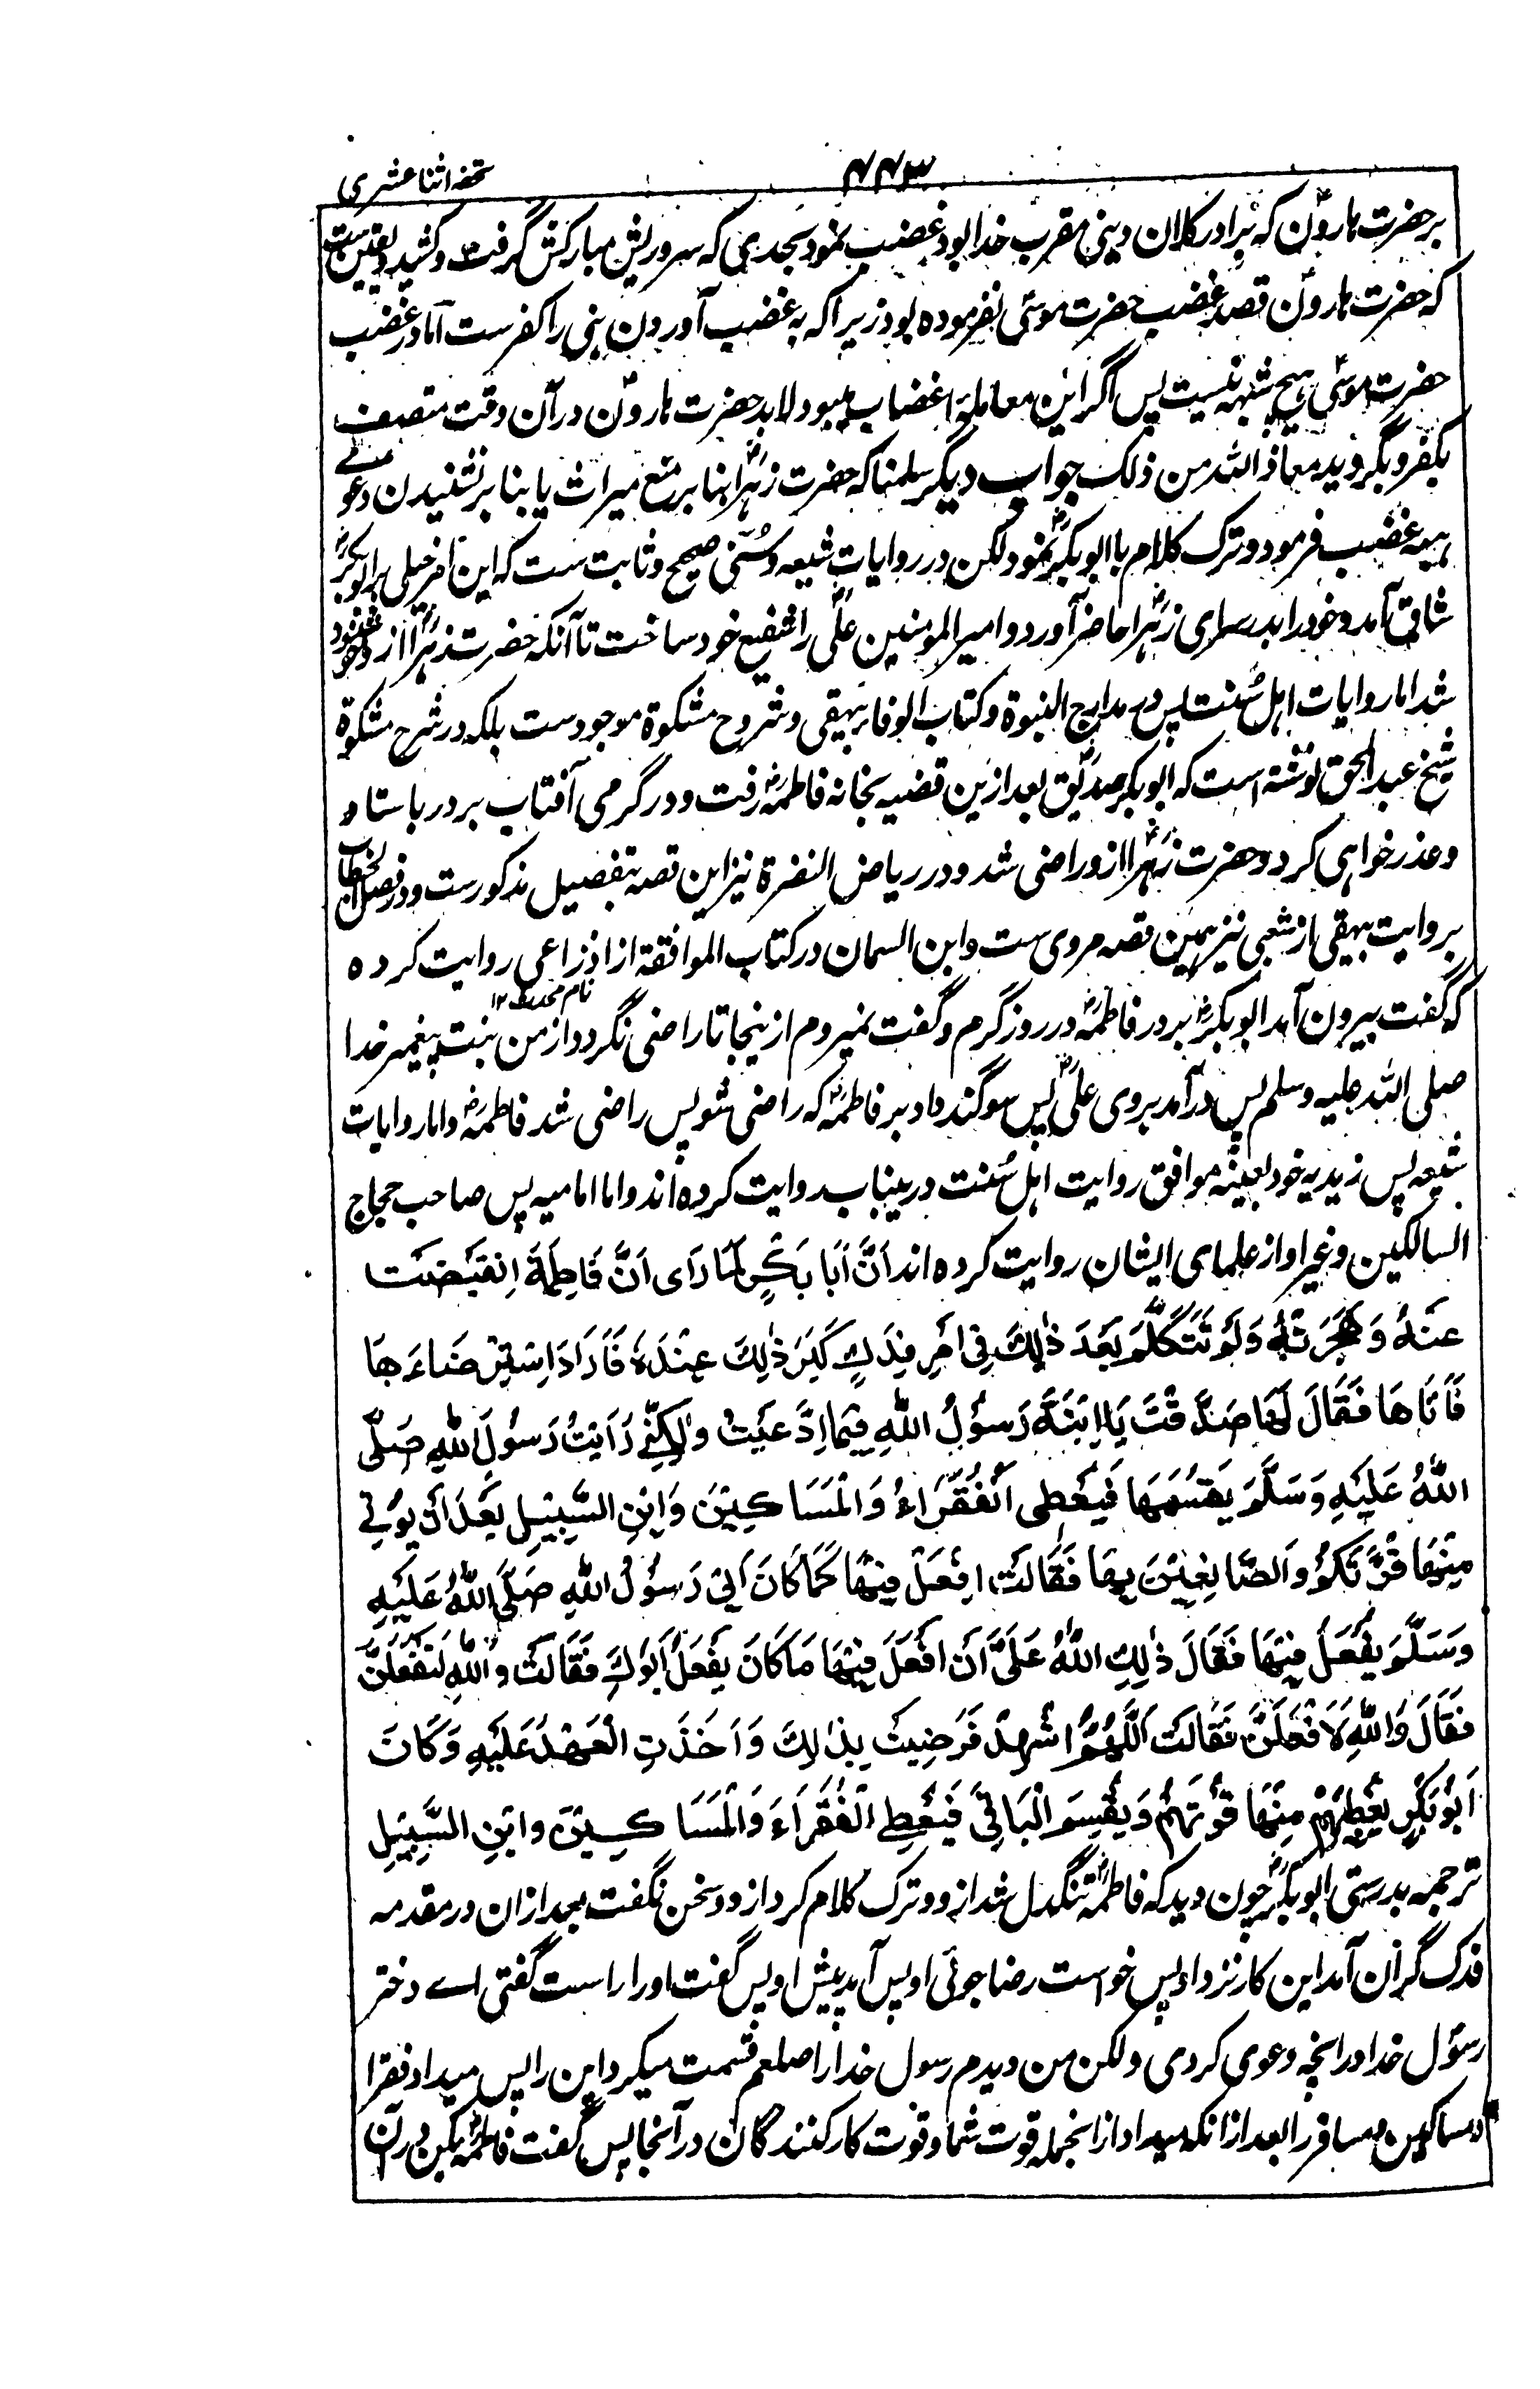 تحفه اثنا عشری
۴۴۳
بر حضرت هارونؑ که برادر کلان و نبی مقرب خدا بود غضب نمود بحدی که سر و ریش مبارکش گرفت و کشید و یقین ست
که حضرت هارونؑ قصد غضب حضرت موسیؑ نفرموده بود زیرا که به غضب آوردن نبی را کفر ست آما در غضب
حضرت موسیؑ هیچ شبهه نیست پس اگر این معامله اغضاب میبود لابد حضرت هارونؑ در آن وقت متصف
بکفر و بگروید معاذ الله من ذلک جواب دیگر سلمنا که حضرت زهراؓ بنا بر منع میراث یا بنا بر نشنیدن دعوے
هبه غضب فرمود و ترک کلام با ابوبکرؓ نمود لکن در روایات شیعه و سُنّی صحیح و ثابت ست که این امر خیلی بر ابوبکرؓ
شاق آمد و خود را بدر سرای زهراؓ حاضر آورد و امیر المومنین علیؓ را شفیع خود ساخت تا آنکه حضرت زهراؓ از و خوشنود
شد اما روایات اهل سُنت پس در مدارج النبوة و کتاب الوفا بیهقی و شروح مشکوة موجود ست بلکه در شرح مشکوة
شیخ عبد الحق نوشته است که ابوبکر صدیقؓ بعد ازین قضیه بخانه فاطمهؓ رفت و در گرمی آفتاب بر در باستاد
و عذر خواهی کرد و حضرت زهراؓ ازو راضی شد و در ریاض النضرة نیز این قصه بتفصیل مذکورست و در فصل الخطاب
بروایت بیهقی از شعبی نیز همین قصه مروی ست و ابن السمان در کتاب الموافقة از اوزاعی روایت کرده
نام محدث ۱۲
که گفت بیرون آمد ابوبکرؓ بر در فاطمهؓ در روز گرم و گفت نمیروم ازینجا تا راضی نگردد از من بنت پیغمبر خدا
صلی الله علیه وسلم پس درآمد بروی علیؓ پس سوگند داد بر فاطمهؓ که راضی شو پس راضی شد فاطمهؓ و اما روایات
شیعه پس زیدیه خود بعینه موافق روایت اهل سُنت درینباب روایت کرده اند و اما امامیه پس صاحب حجاج
السالکین و غیر او از علمای ایشان روایت کرده اند اَنَّ اَبَا بَكْرٍ لَمَّا رَاى اَنَّ فَاطِمَةَ اِنْقَبَضَتْ
عَنْهُ وَهَجَرَتْهُ وَلَمْ تَتَكَلَّمْ بَعْدَ ذٰلِكَ فِي اَمْرِ فِدَكٍ كَبُرَ ذٰلِكَ عِنْدَهٗ فَاَرَادَ اِسْتِرْضَاءَهَا
فَاَتَاهَا فَقَالَ لَهَا صَدَقْتَ يَا اِبْنَةَ رَسُوْلِ اللّٰهِ فِيْمَا اِدَّعَيْتِ وَلٰكِنِّيْ رَاَيْتُ رَسُوْلَ اللّٰهِ صَلَّى
اللّٰهُ عَلَيْهِ وَسَلَّمَ يَقْسِمُهَا فَيُعْطِى الْفُقَرَاءَ وَالْمَسَاكِيْنَ وَابْنِ السَّبِيْلِ بَعْدَ اَنْ يُوْتِيَ
مِنْهَا قُوْتَكُمْ وَالصَّانِعِيْنَ بِهَا فَقَالَتْ اِفْعَلْ فِيْهَا كَمَا كَانَ اَبِيْ رَسُوْلُ اللّٰهِ صَلَّى اللّٰهُ عَلَيْهِ
وَسَلَّمَ يَفْعَلُ فِيْهَا فَقَالَ ذٰلِكِ اللّٰهُ عَلَيَّ اَنْ اَفْعَلَ فِيْهَا مَا كَانَ يَفْعَلُ اَبُوْكِ فَقَالَتْ وَاللّٰهِ لَتَفْعَلَنَّ
فَقَالَ وَاللّٰهِ لَاَفْعَلَنَّ فَقَالَتْ اَللّٰهُمَّ اشْهَدْ فَرَضِيَتْ بِذٰلِكَ وَاَخَذَتِ الْعَهْدَ عَلَيْهِ وَكَانَ
اَبُوْبَكْرٍ يُعْطِيْهِمْ مِنْهَا قُوْتَهُمْ وَيَقْسِمُ الْبَاقِيَ فَيُعْطِى الْفُقَرَاءَ وَالْمَسَاكِيْنَ وَابْنِ السَّبِيْلِ
ترجمه بدرستی ابوبکرؓ چون دید که فاطمهؓ تنگدل شد ازو و ترک کلام کرد ازو و سخن نگفت بعد ازان در مقدمه
فدک گران آمد این کار نزد او پس خواست رضا جوئی او پس آمد پیش او پس گفت اورا راست گفتی اے دختر
رسول خدا در انچه دعوی کردی ولکن من دیدم رسول خدا را صلعم قسمت میکرد این را پس میداد فقرا
و مساکین و مسافر را بعد از انکه میداد از انجمله قوت شما و قوت کارکنندگان در آنجا پس گفت فاطمهؓ بکن در آن